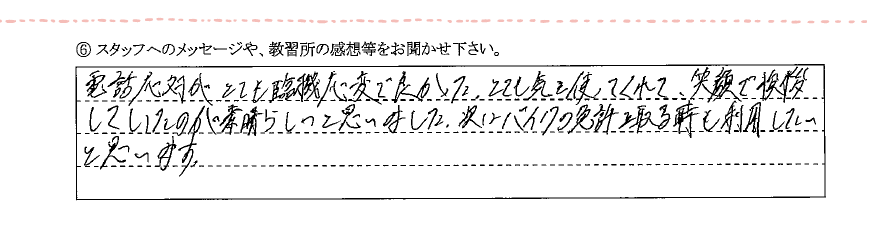 ⑥ スタッフへのメッセージや、教習所の感想等をお聞かせ下さい。
電話応対がとても臨機応変で良かった。とても気を使ってくれて、笑顔で挨拶
していたのが素晴らしいと思いました。次はバイクの免許を取る時も利用したい
と思います。